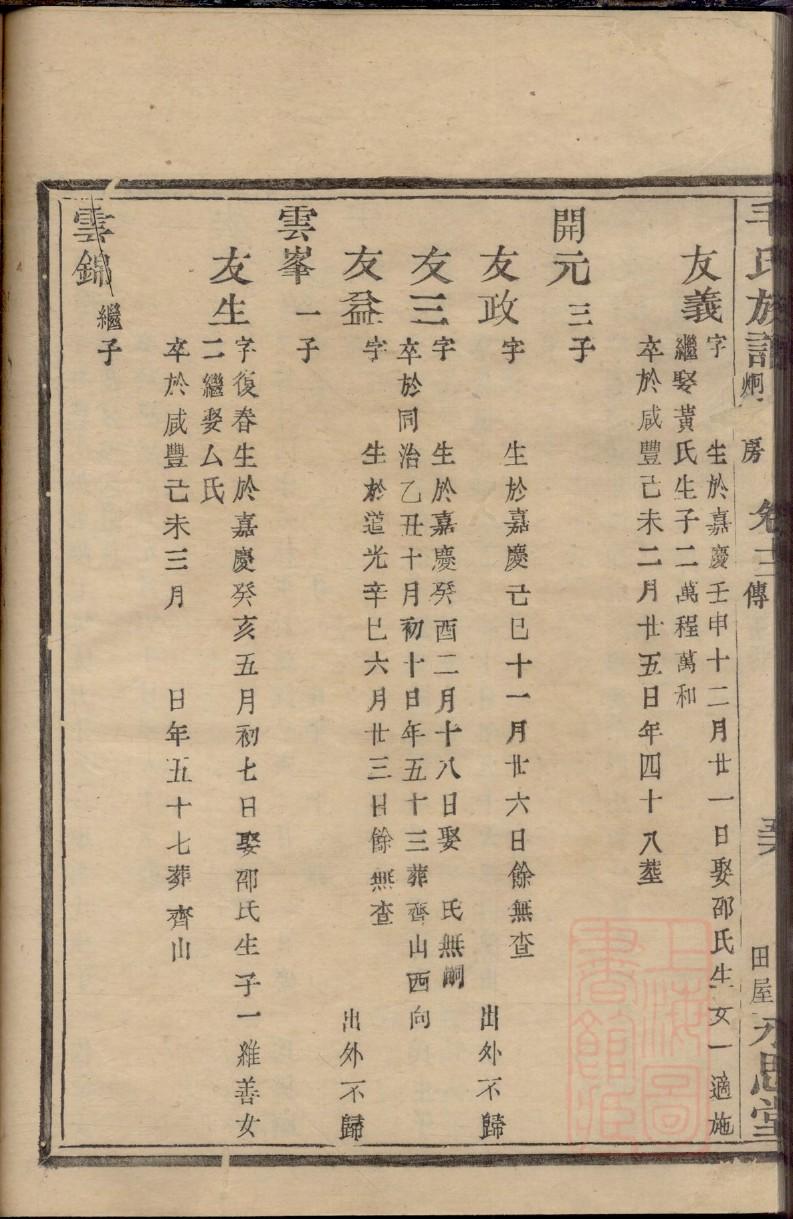 毛氏族譜 炯公房 卷十二 傳 五六 田屋 永思堂
友義 字 生於嘉慶壬申十二月廿一日娶邵氏生女一適施
繼娶黃氏生子二萬程萬和
卒於咸豐己未二月廿五日年四十八塟
開元 三子
友政 字 生於嘉慶己巳十一月廿六日餘無查 出外不歸
友三 字 生於嘉慶癸酉二月十八日娶 氏無嗣
卒於同治乙丑十月初十日年五十三葬齊山西向
友益 字 生於道光辛巳六月廿三日餘無查 出外不歸
雲峯 一子
友生 字復春生於嘉慶癸亥五月初七日娶邵氏生子一維善女
二繼娶厶氏
卒於咸豐己未三月 日年五十七葬齊山
雲錦 繼子
上海圖書館藏